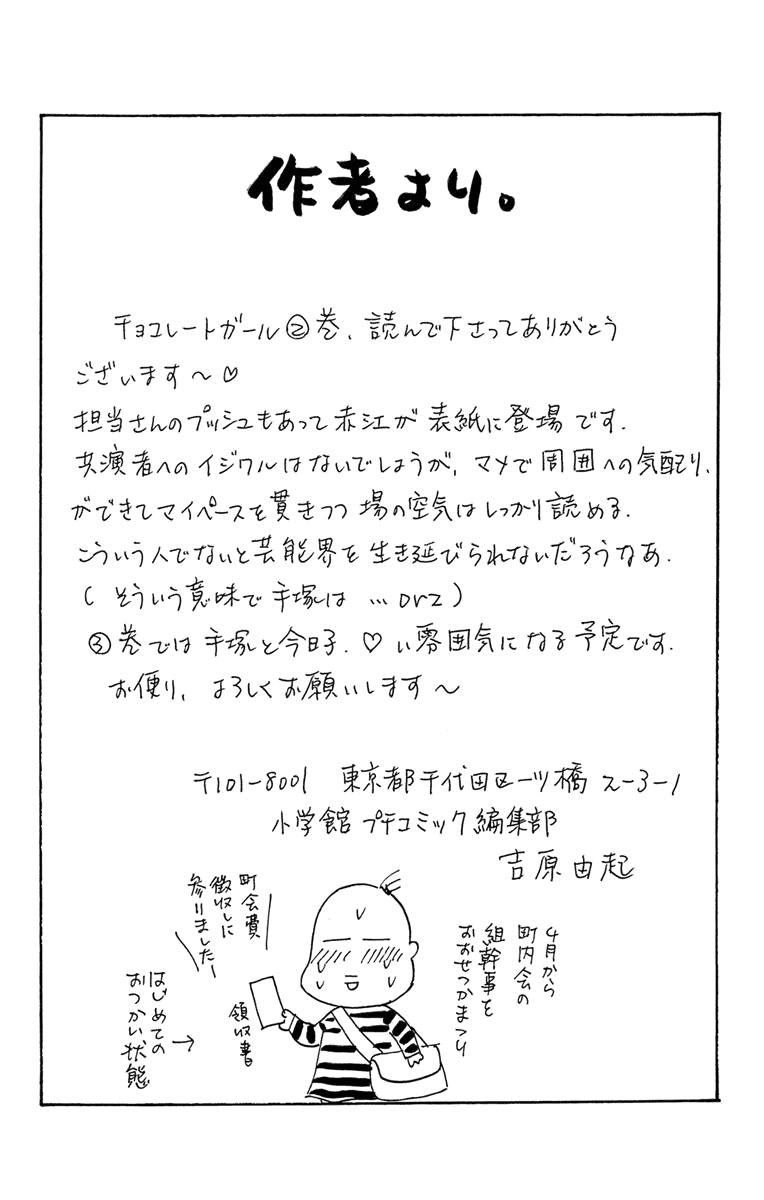 作者より。
チョコレートガール②巻、読んで下さってありがとう
ございます〜♡
担当さんのプッシュもあって赤江が表紙に登場です.
共演者へのイジワルはないでしょうが、マメで周囲への気配り、
ができてマイペースを貫きつつ場の空気はしっかり読める.
こういう人でないと芸能界を生き延びられないだろうなあ.
(そういう意味で手塚は…orz)
③巻では手塚と今日子.♡い雰囲気になる予定です.
お便り、よろしくお願いします〜
〒101-8001 東京都千代田区一ツ橋2-3-1
小学館プチコミック編集部
吉原由起
4月から
町内会の
組幹事を
おおせつかまつり
町会費
徴収しに
参りましたー
領収書
はじめての
おつかい状態
→